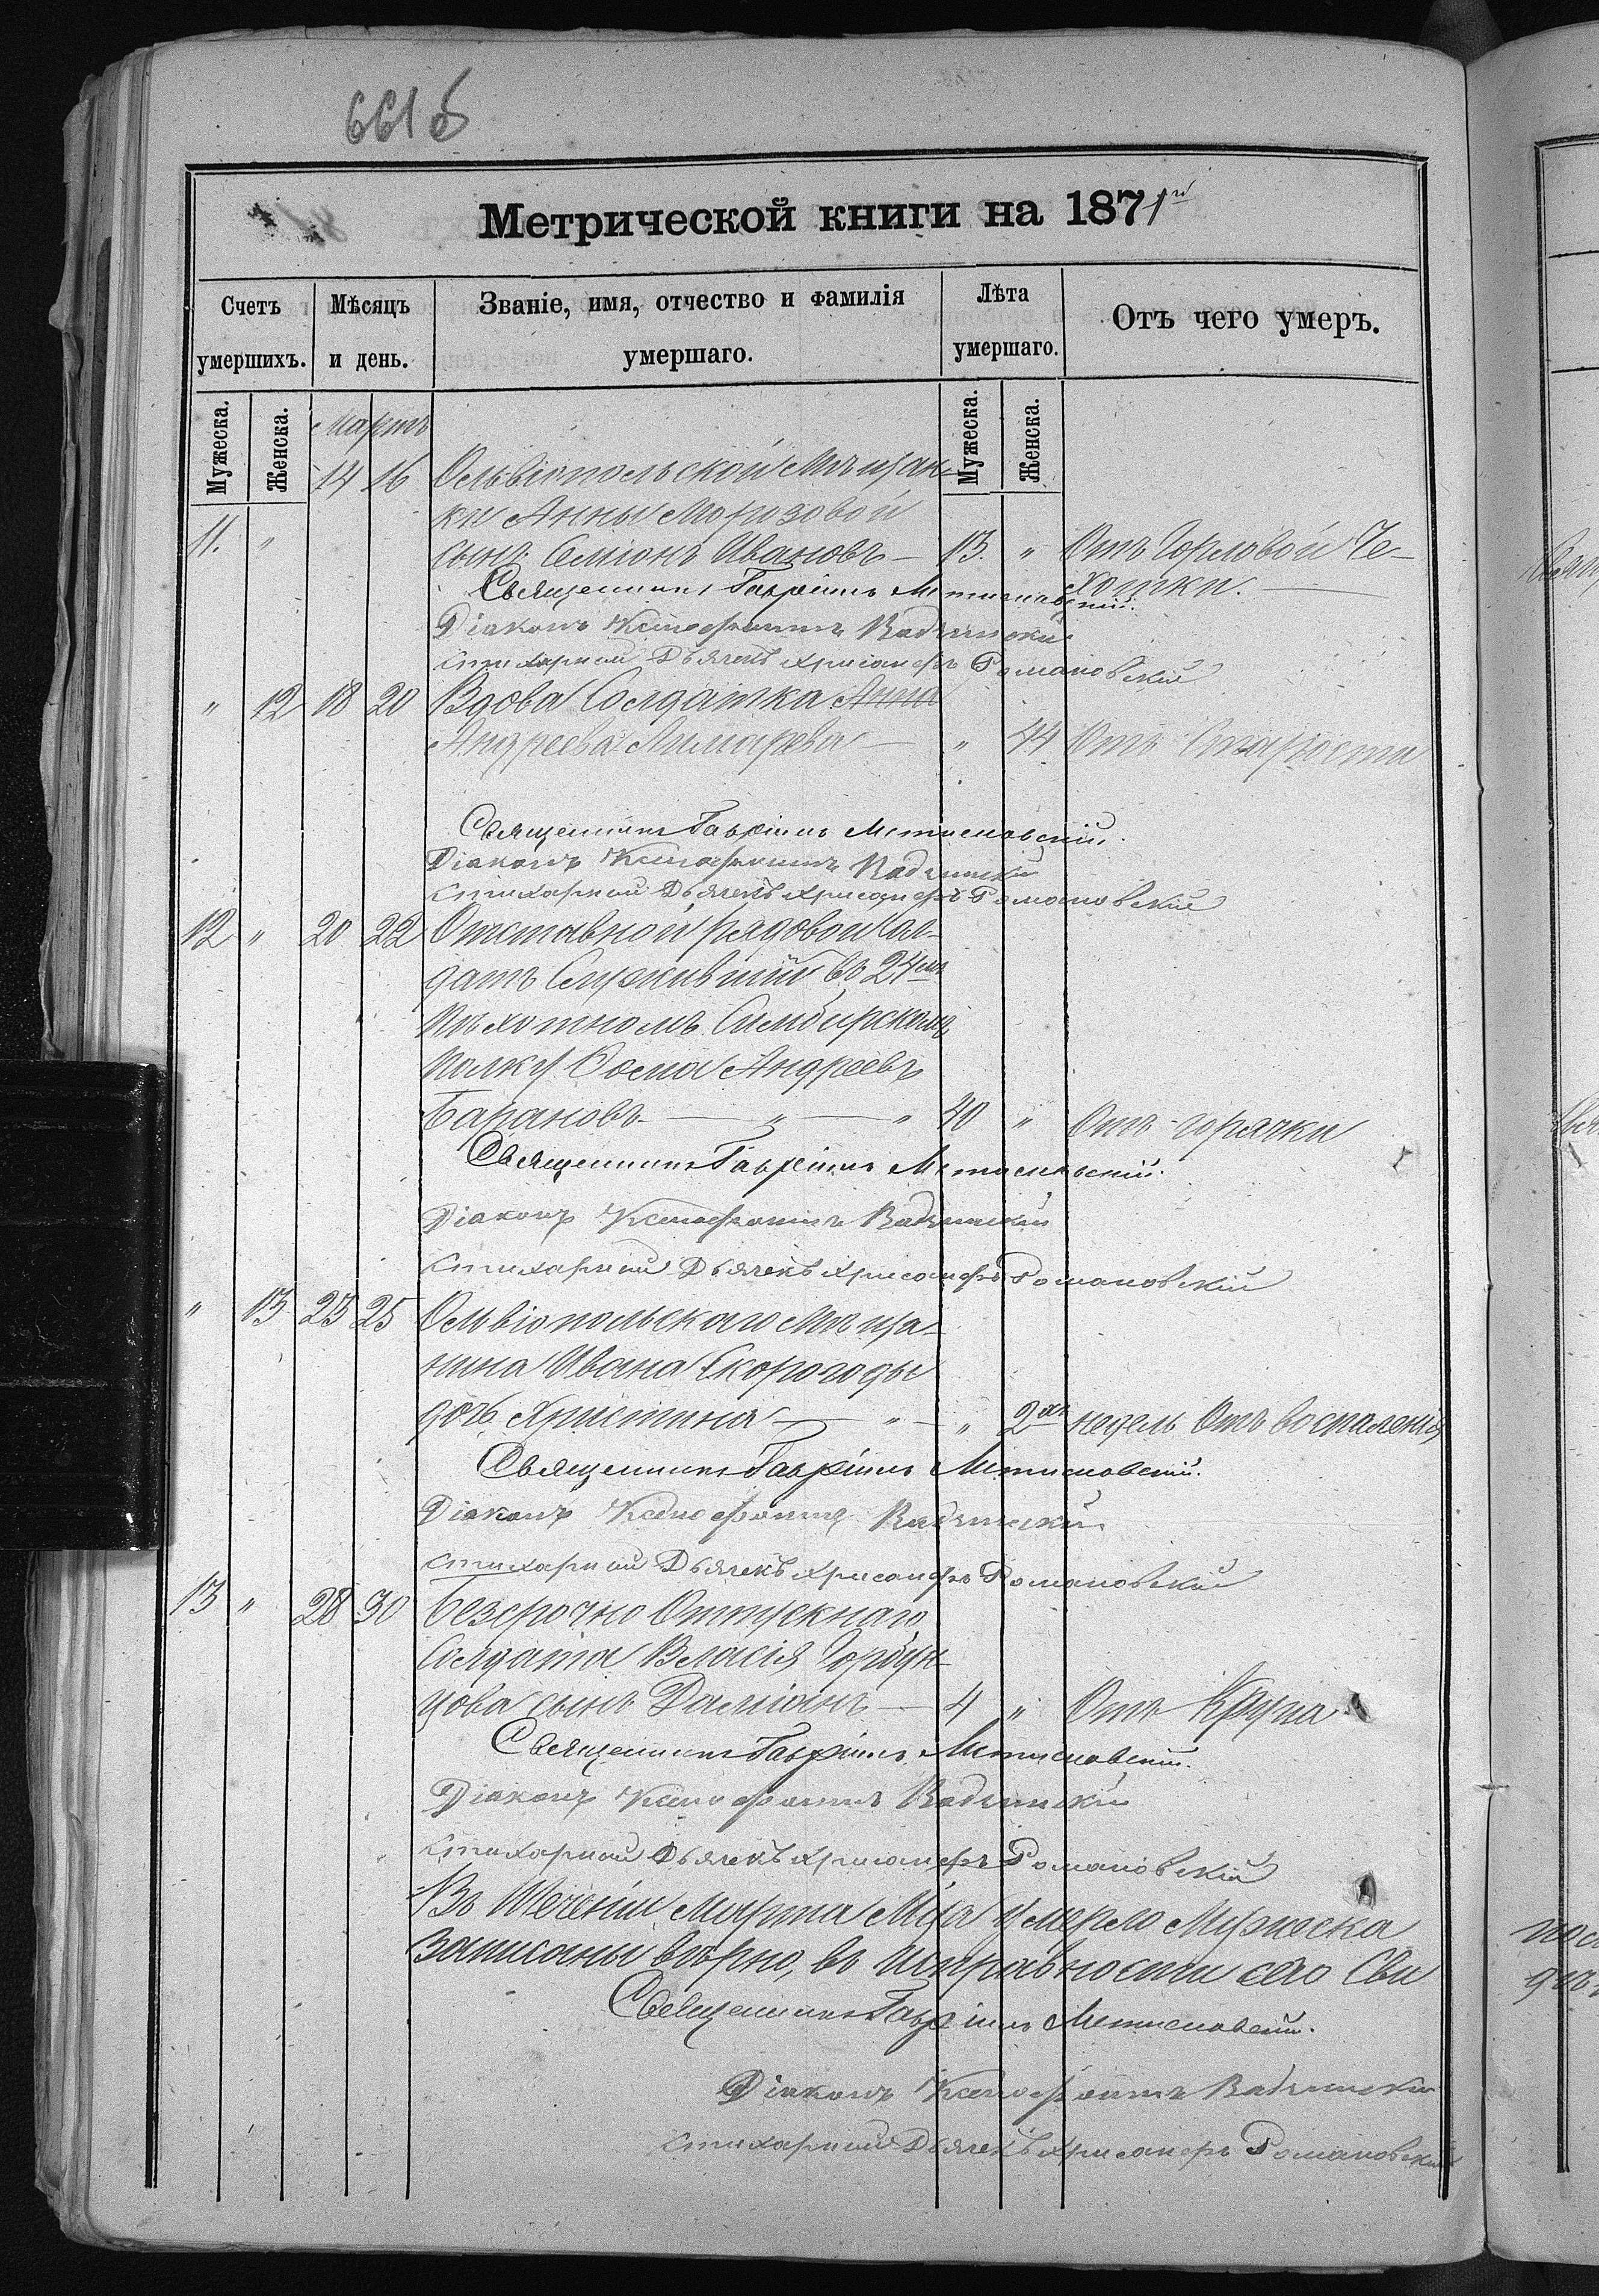 661 б
Метрической книги на 1871й
Счетъ умершихъ.
Мѣсяцъ и день.
Званіе, имя, отчество и фамилія умершаго.
Лѣта умершаго.
Отъ чего умеръ.
Мужеска. Женска. Мужеска. Женска.
Мартъ
14 16 Ольвіопольской Мѣщан-
ки Анны Морозовой
11. " сынъ Семіонъ Ивановъ — 13. " Отъ Горловой Че-
хотки. —
Священникъ Гавріилъ Мстиславскій.
Діаконъ Ксенофонтъ
Стихарный Дьячекъ Хрисанфъ Романовскій
" 12 18 20 Вдова Солдатка Анна
Андреева — " 44 Отъ Старости
Священникъ Гавріилъ Мстиславскій.
Діаконъ Ксенофонтъ
Стихарный Дьячекъ Хрисанфъ Романовскій
12 " 20 22 Отставной рядовой Сол-
датъ Служившій въ 24мъ
Пѣхотномъ Симбирскомъ
Полку Козма Андреевъ
Барановъ — " — " 40 " Отъ горячки
Священникъ Гавріилъ Мстиславскій.
Діаконъ Ксенофонтъ
Стихарный Дьячекъ Хрисанфъ Романовскій
" 13 23 25 Ольвіопольскаго Мѣща-
нина Ивана Скорогоды
дочь Христина — " — " 2хъ недель Отъ воспаленія
Священникъ Гавріилъ Мстиславскій.
Діаконъ Ксенофонтъ
Стихарный Дьячекъ Хрисанфъ Романовскій
13 " 28 30 Безсрочно Отпускнаго
Солдата Власія Горбун-
цова сынъ Даміанъ — 4 " Отъ Крупа
Священникъ Гавріилъ Мстиславскій.
Діаконъ Ксенофонтъ
Стихарный Дьячекъ Хрисанфъ Романовскій
Въ Теченіи Марта М-ца Умерло Мужеска
записаны вѣрно, въ исправности сего Сви
Священникъ Гавріилъ Мстиславскій.
Діаконъ Ксенофонтъ
Стихарный Дьячекъ Хрисанфъ Романовскій